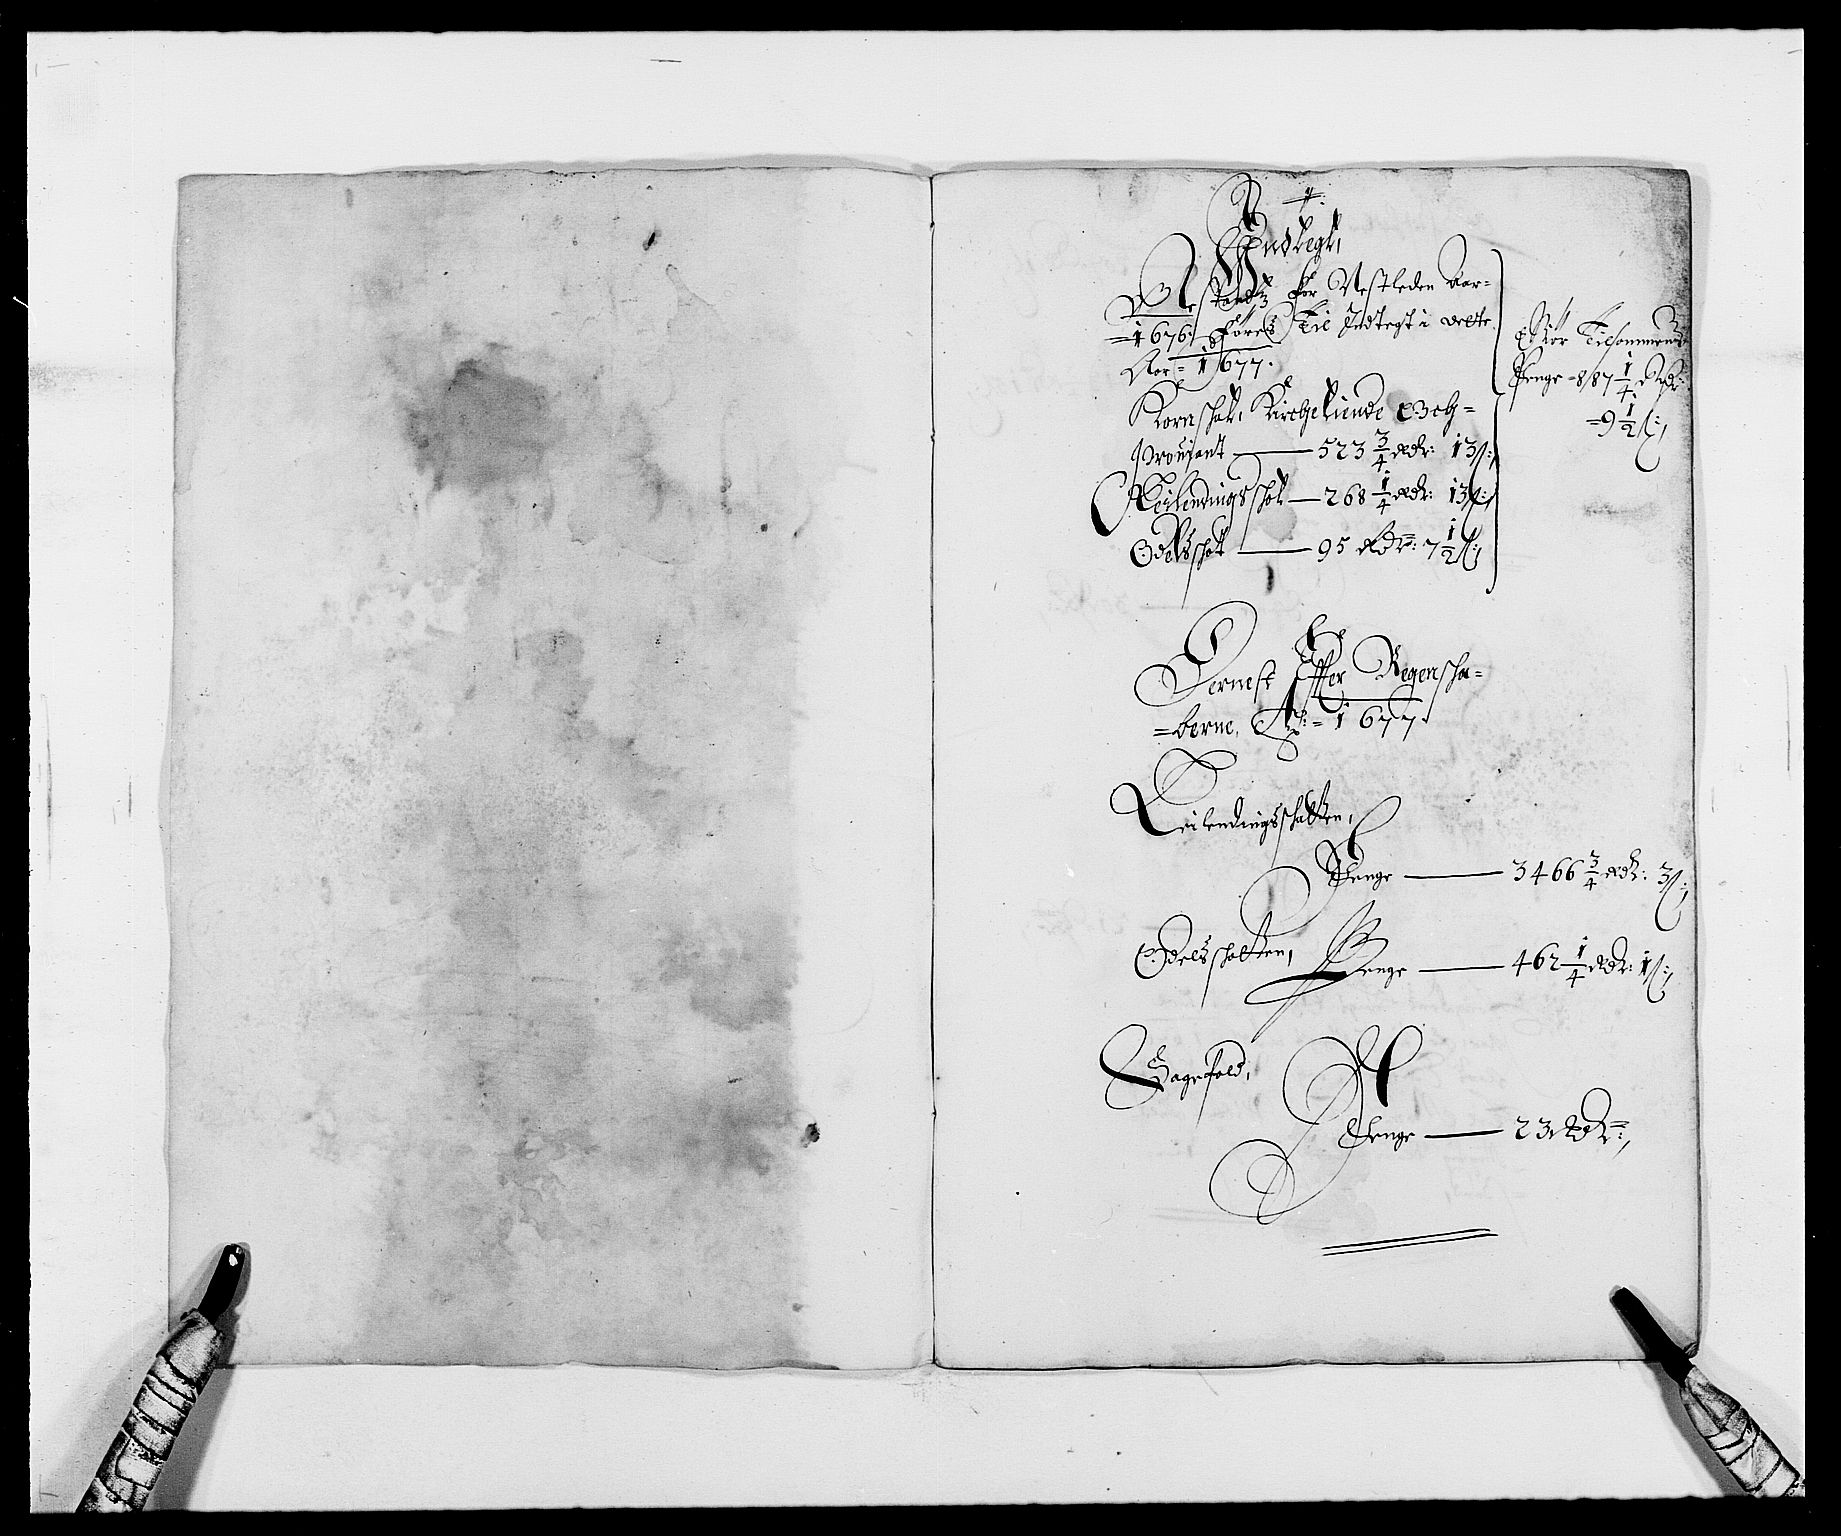 Indtegt,
Restandz for Nestleden Aar=
=1676: Føres Til Indtegt i dette
Aar= 1677.
Kornschat, Kirchetiende och
Proviant — 523 3/4 Rdr: 13 ß:,
Leilendingsschat — 268 1/4 Rdr: 13 ß:,
Odelsschat — 95 Rdr: 7 1/2 ß:,
Er Tilsommens
Penge = 887 1/4 Rdr:
=9 1/2 ß:,
Dernest Effter Regenscha=
=berne, Ao:= 1677.
Leilendingsschatten,
Penge — 3466 3/4 Rdr: 3 ß:,
Odelsschatten, Penge — 462 1/4 Rdr: 1 ß:,
Sagefald,
Penge — 23 Rdr:,